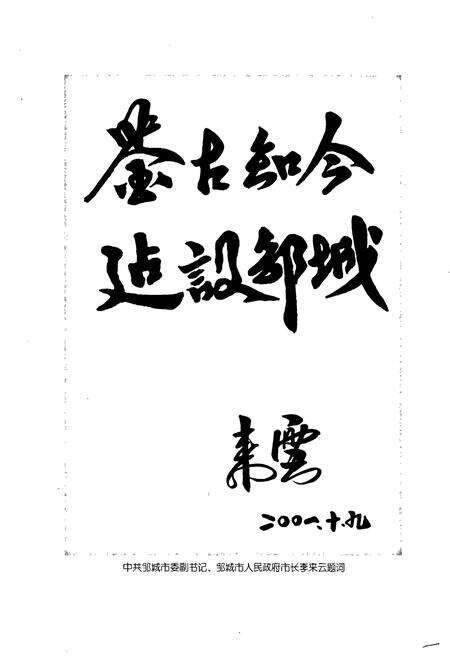 鉴古知今
建設邹城
来雲
二00一.十.九
中共邹城市委副书记、邹城市人民政府市长李来云题词